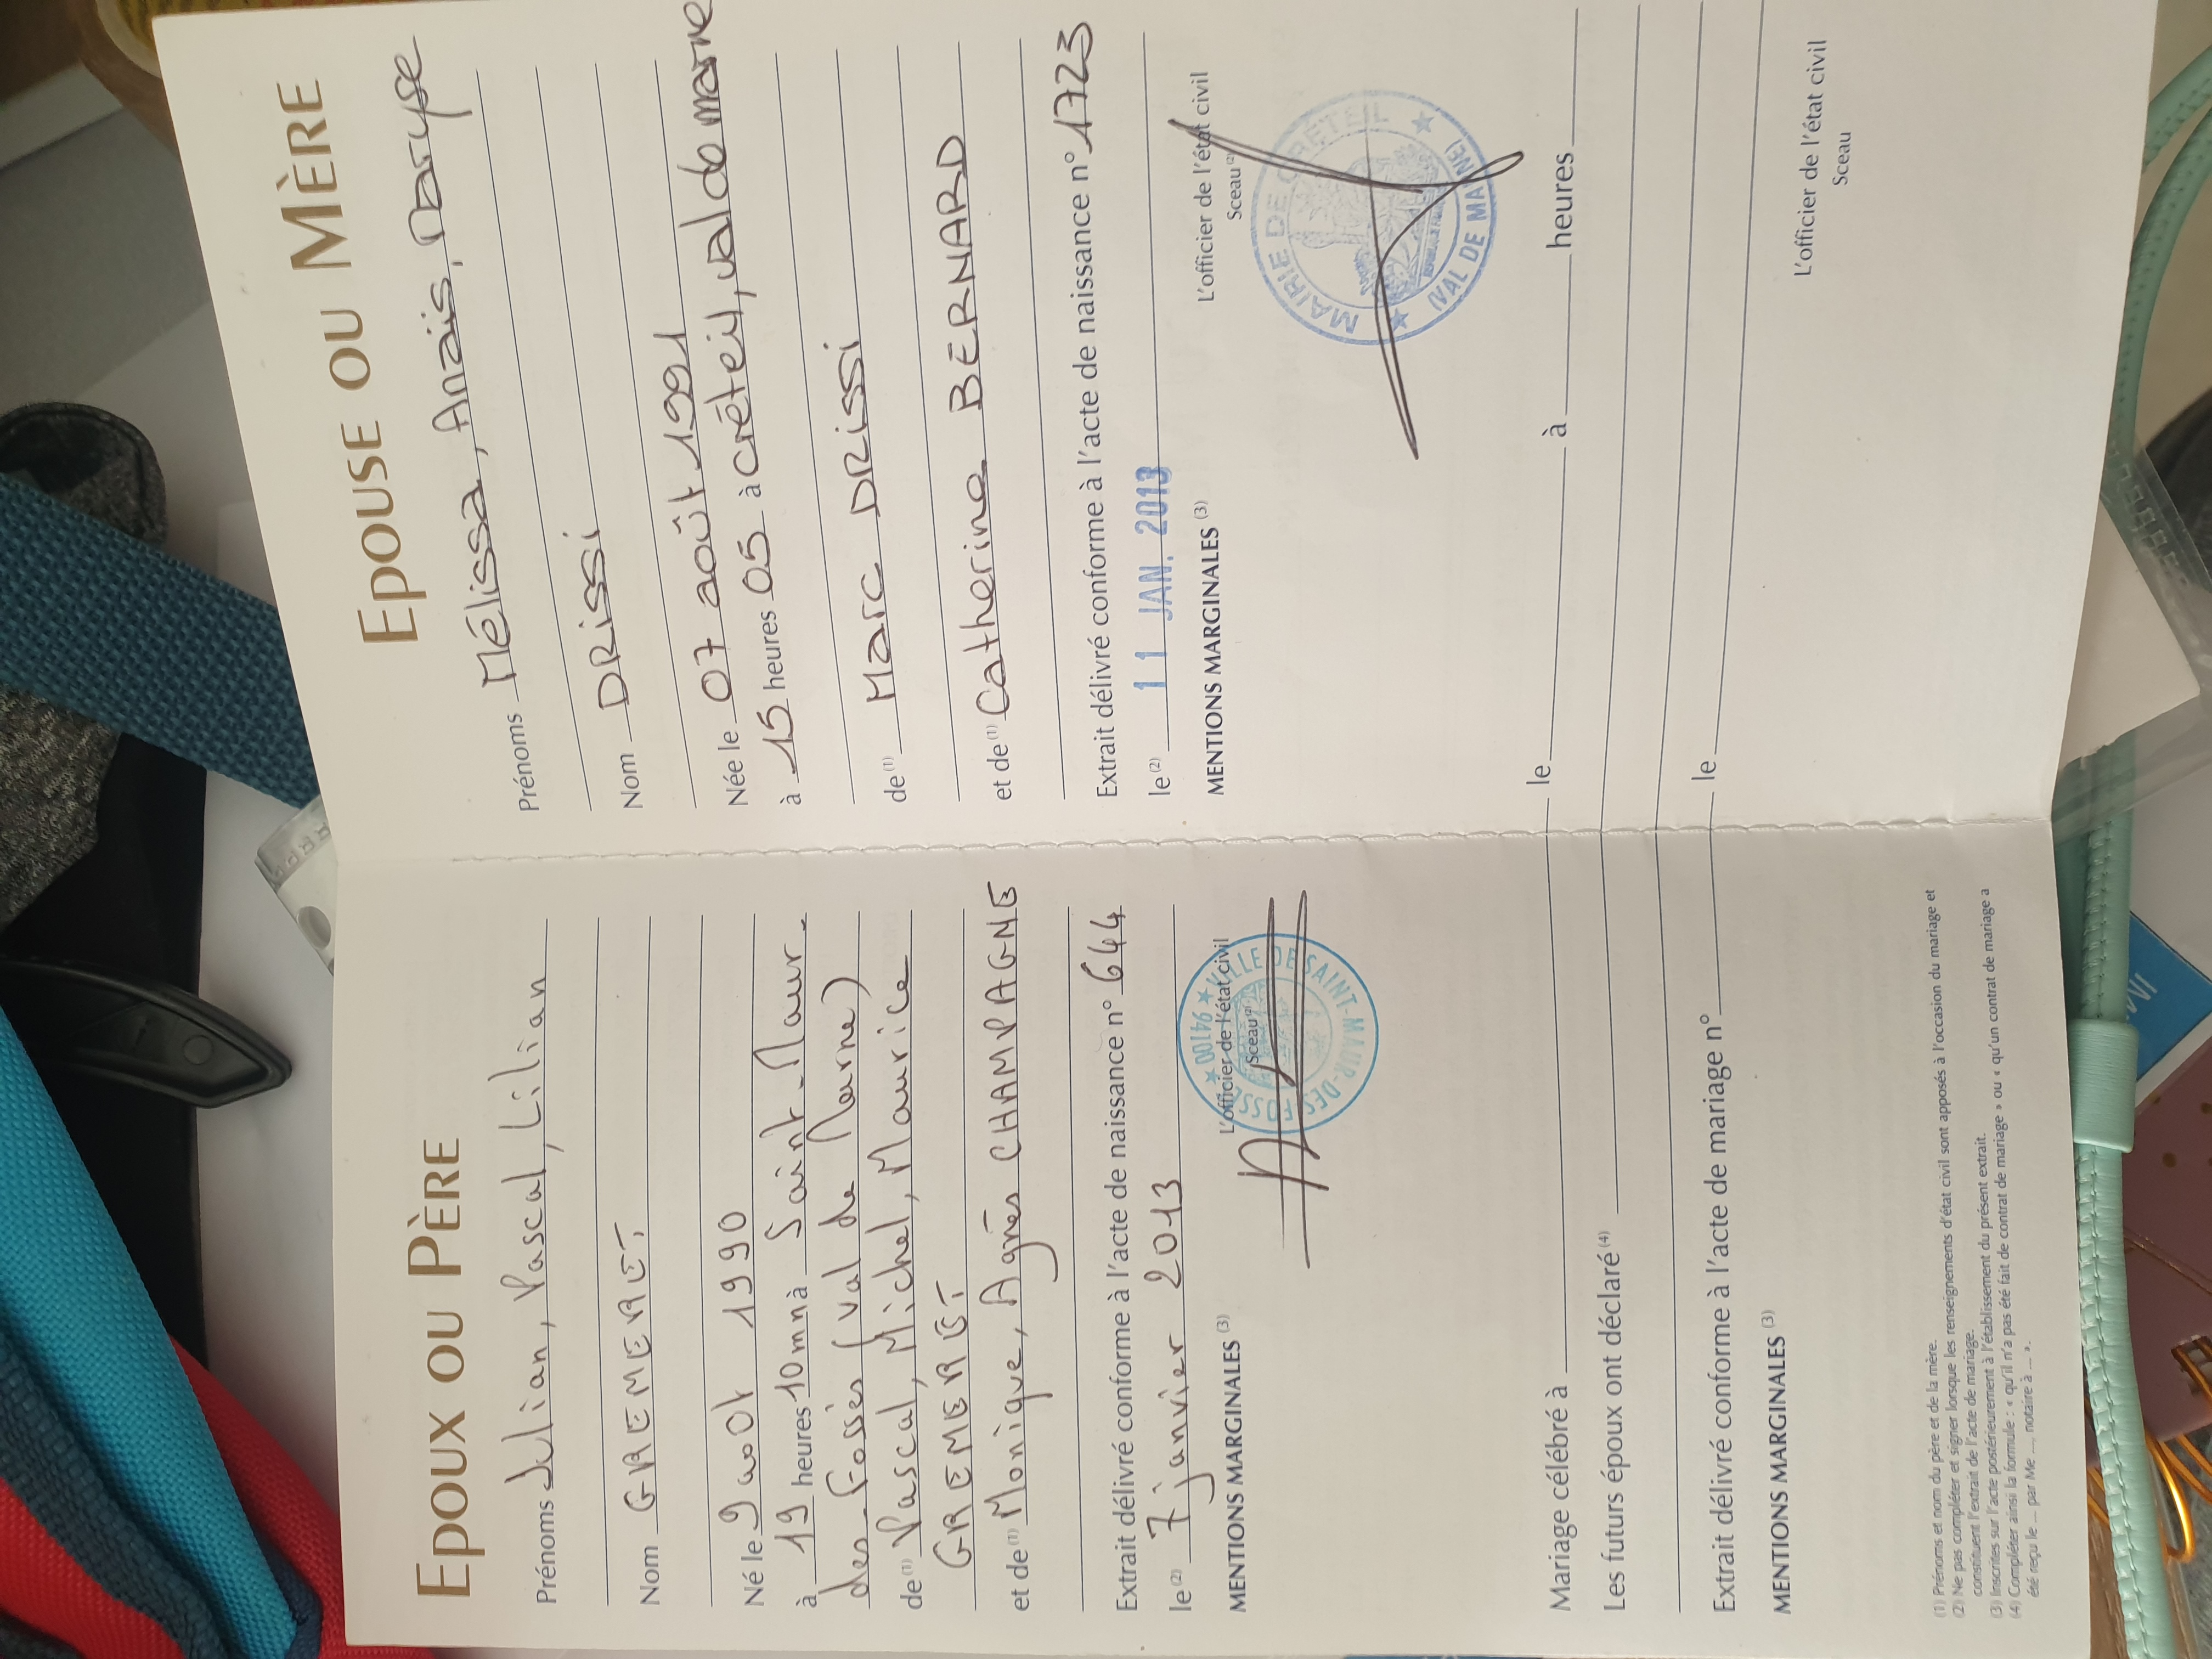 EPOUX OU PÈRE
Prénoms Julian, Pascal, Lilian
Nom GREMERET
Né le 9 août 1990
à 19 heures 10mn à Saint-Maur-
des-Fossés (Val de Marne)
de (1) Pascal, Michel, Maurice
GREMERET
et de (1) Monique, Agnès CHAMPAGNE
Extrait délivré conforme à l'acte de naissance n° 644
le (2) 7 janvier 2013
MENTIONS MARGINALES (3)
L'officier de l'état civil
Sceau (2)
VILLE DE SAINT-MAUR-DES-FOSSES ★ 94100 ★
EPOUSE OU MÈRE
Prénoms Mélissa, Anaïs, Daryse
Nom DRissi
Née le 07 août 1991
à 15 heures 05 à Créteil, val de marne
de (1) Marc DRissi
et de (1) Catherine BERNARD
Extrait délivré conforme à l'acte de naissance n° 1723
le (2) 11 JAN. 2013
MENTIONS MARGINALES (3)
L'officier de l'état civil
Sceau (2)
MAIRIE DE CRÉTEIL ★ (VAL DE MARNE) ★
Mariage célébré à le à heures
Les futurs époux ont déclaré (4)
Extrait délivré conforme à l'acte de mariage n° le
MENTIONS MARGINALES (3)
L'officier de l'état civil
Sceau
(1) Prénoms et nom du père et de la mère.
(2) Ne pas compléter et signer lorsque les renseignements d'état civil sont apposés à l'occasion du mariage et
constituent l'extrait de l'acte de mariage.
(3) Inscrites sur l'acte postérieurement à l'établissement du présent extrait.
(4) Compléter ainsi la formule : « qu'il n'a pas été fait de contrat de mariage » ou « qu'un contrat de mariage a
été reçu le ... par Me ..., notaire à ... ».